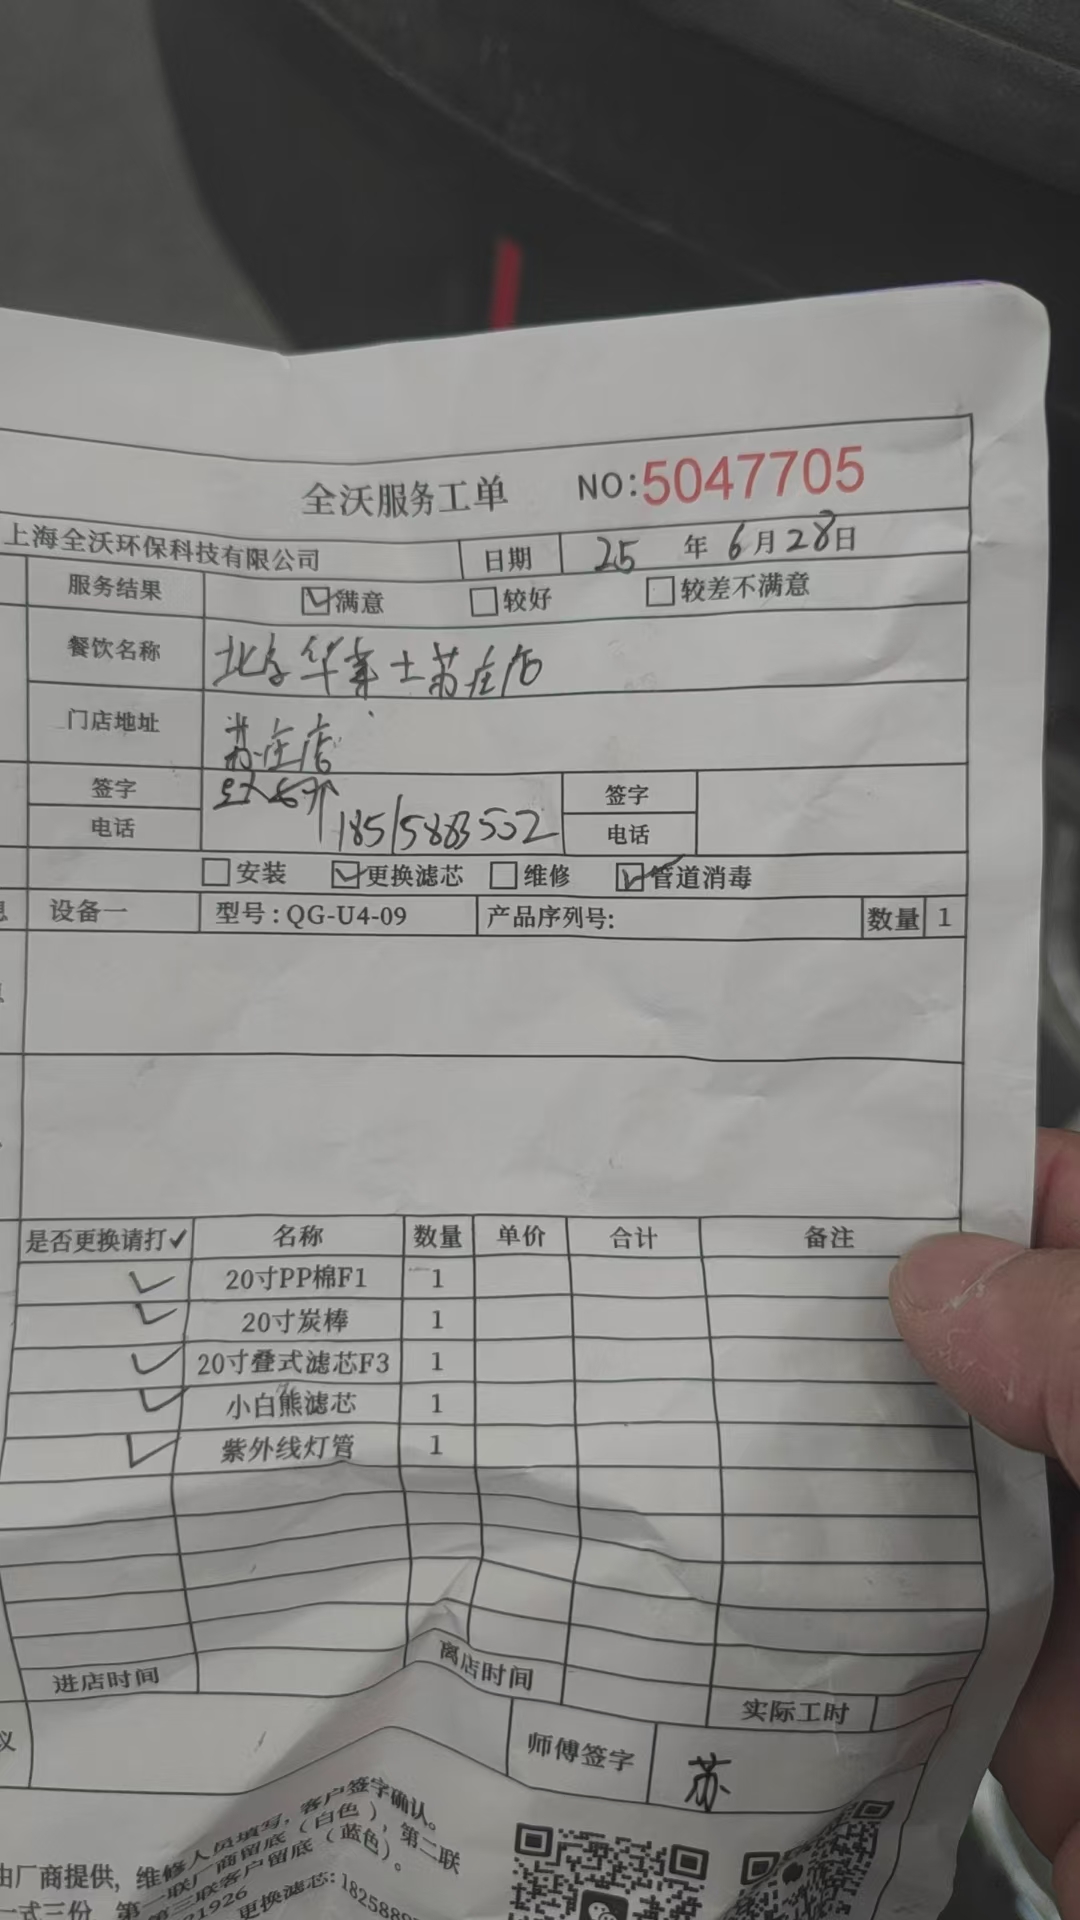 全沃服务工单 NO:5047705
上海全沃环保科技有限公司 日期 25 年 6月28日
服务结果 满意 较好 较差不满意
餐饮名称 北京华莱士苏庄店
门店地址 苏庄店
签字 签字
电话 18515883502 电话
安装 更换滤芯 维修 管道消毒
设备一 型号:QG-U4-09 产品序列号: 数量 1
是否更换请打✓ 名称 数量 单价 合计 备注
✓ 20寸PP棉F1 1
✓ 20寸炭棒 1
✓ 20寸叠式滤芯F3 1
✓ 小白熊滤芯 1
✓ 紫外线灯管 1
进店时间 离店时间 实际工时
议 师傅签字 苏
由厂商提供,维修人员填写,客户签字确认。
一式三份,第一联厂商留底(白色),第二联
第三联客户留底(蓝色)。
21926 更换滤芯:182588